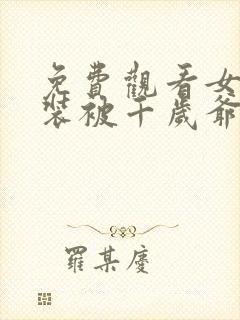 免費觀看女
裝被千歲爺
羅某慶